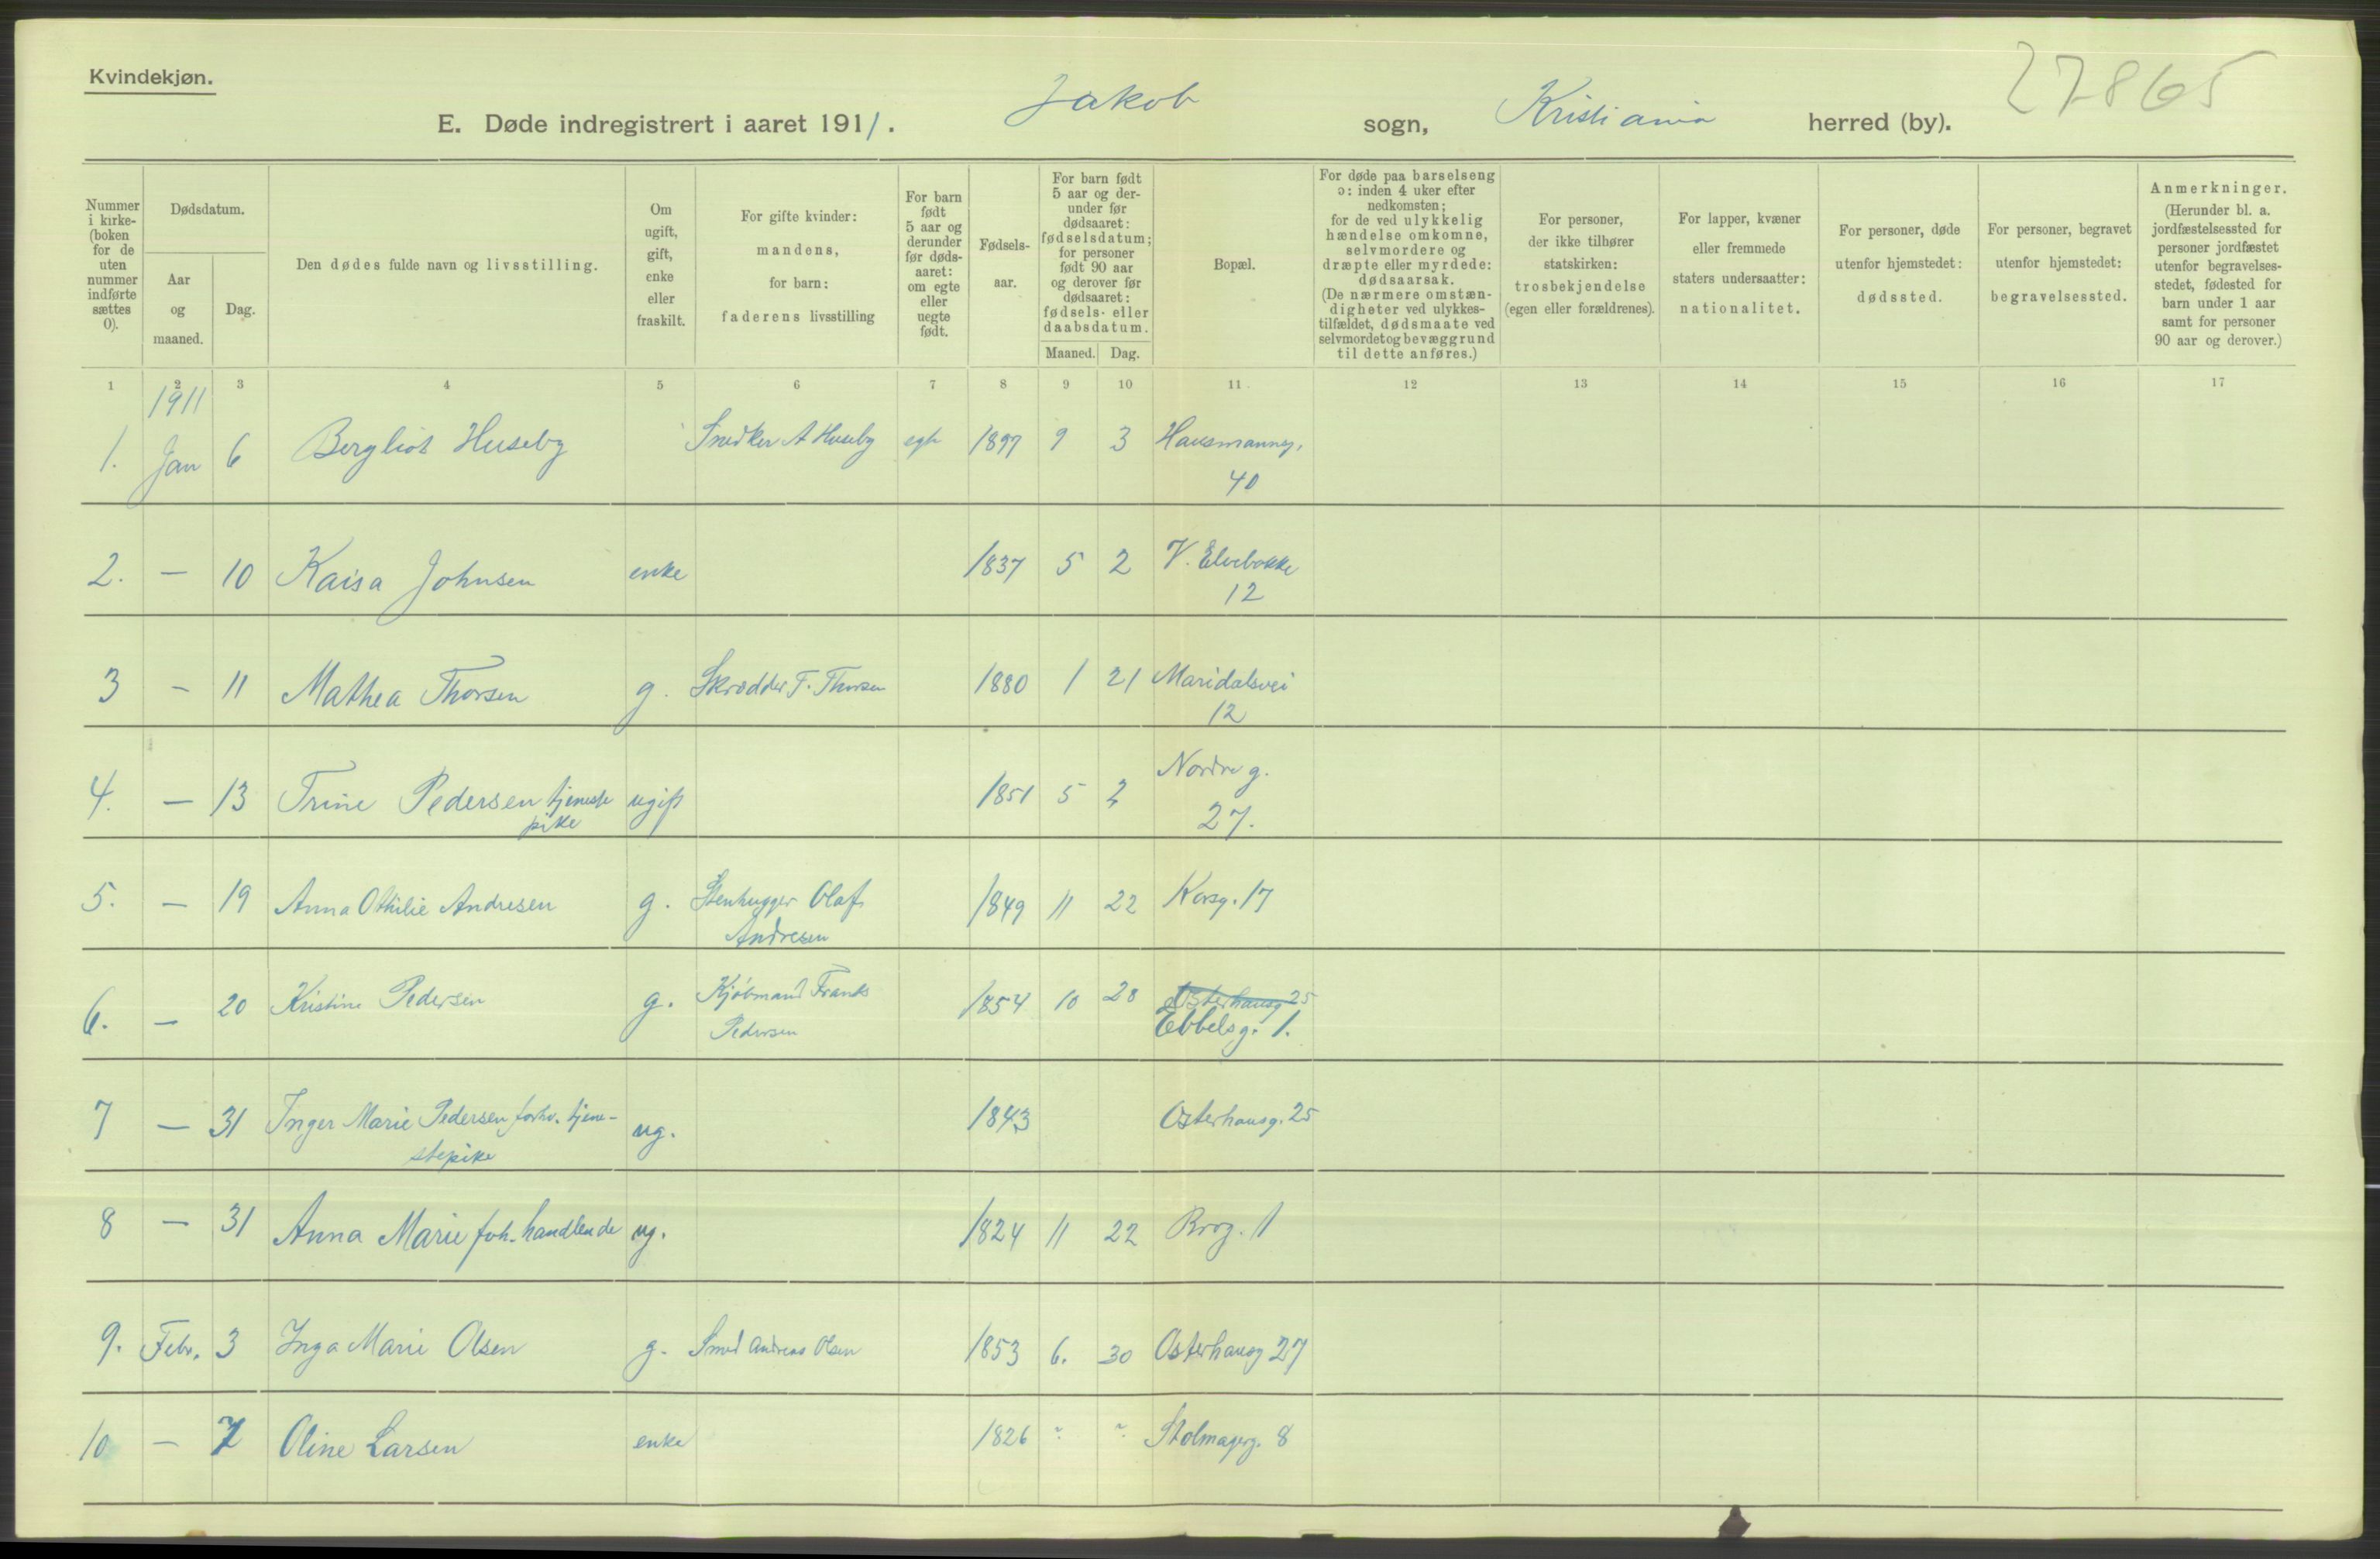 Kvindekjøn.
27865
E. Døde indregistrert i aaret 1911. Jakob sogn, Kristiania herred (by).
Nummer i kirke-(boken for de uten nummer indførte sættes 0).
Dødsdatum.
Aar og maaned.
Dag.
Den dødes fulde navn og livsstilling.
Om ugift, gift, enke eller fraskilt.
For gifte kvinder: mandens, for barn: faderens livsstilling
For barn født 5 aar og derunder før døds-aaret: om egte eller uegte født.
Fødsels-aar.
For barn født 5 aar og der-under før dødsaaret: fødselsdatum; for personer født 90 aar og derover før dødsaaret: fødsels- eller daabsdatum.
Maaned. Dag.
Bopæl.
For døde paa barselseng ɔ: inden 4 uker efter nedkomsten; for de ved ulykkelig hændelse omkomne, selvmordere og dræpte eller myrdede: dødsaarsak. (De nærmere omstæn-digheter ved ulykkes-tilfældet, dødsmaate ved selvmordet og bevæggrund til dette anføres.)
For personer, der ikke tilhører statskirken: trosbekjendelse (egen eller forældrenes).
For lapper, kvæner eller fremmede staters undersaatter: nationalitet.
For personer, døde utenfor hjemstedet: dødssted.
For personer, begravet utenfor hjemstedet: begravelsessted.
Anmerkninger. (Herunder bl. a. jordfæstelsessted for personer jordfæstet utenfor begravelses-stedet, fødested for barn under 1 aar samt for personer 90 aar og derover.)
1 2 3 4 5 6 7 8 9 10 11 12 13 14 15 16 17
1911
1. Jan 6 Bergliot Huseby Snedker A Huseby egte 1897 9 3 Hausmannsg.
40
2. — 10 Kaisa Johnsen enke 1837 5 2 V. Elvebakke
12
3 — 11 Mathea Thorsen g. Skrædder F. Thorsen 1880 1 21 Maridalsvei
12
4. — 13 Trine Pedersen tjeneste ugift 1851 5 2 Nordre g.
pike 27.
5. — 19 Anna Othilie Andresen g. Stenhugger Olaf 1849 11 22 Korsg. 17
Andresen
6. — 20 Kristine Pedersen g. Kjøbmand Frants 1854 10 28 Osterhausg 25
Pedersen Ebbelsg. 1.
7 — 31 Inger Marie Pedersen forhv. tjene- ug. 1843 Osterhausg. 25
stepike
8 — 31 Anna Marie foh. handlende ug. 1824 11 22 Brog. 11
9. Febr. 3 Inga Marie Olsen g. Smed Andreas Olsen 1853 6. 30 Osterhausg 27
10 — 7 Oline Larsen enke 1826 Stolmagerg. 8